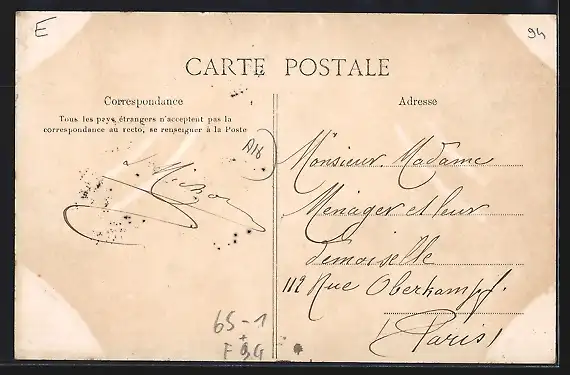 E
94
CARTE POSTALE
Correspondance
Tous les pays étrangers n'acceptent pas la
correspondance au recto, se renseigner à la Poste
Adresse
Monsieur Madame
Ménager et leur
Demoiselle
112 Rue Oberkampf.
(Paris)
65-1